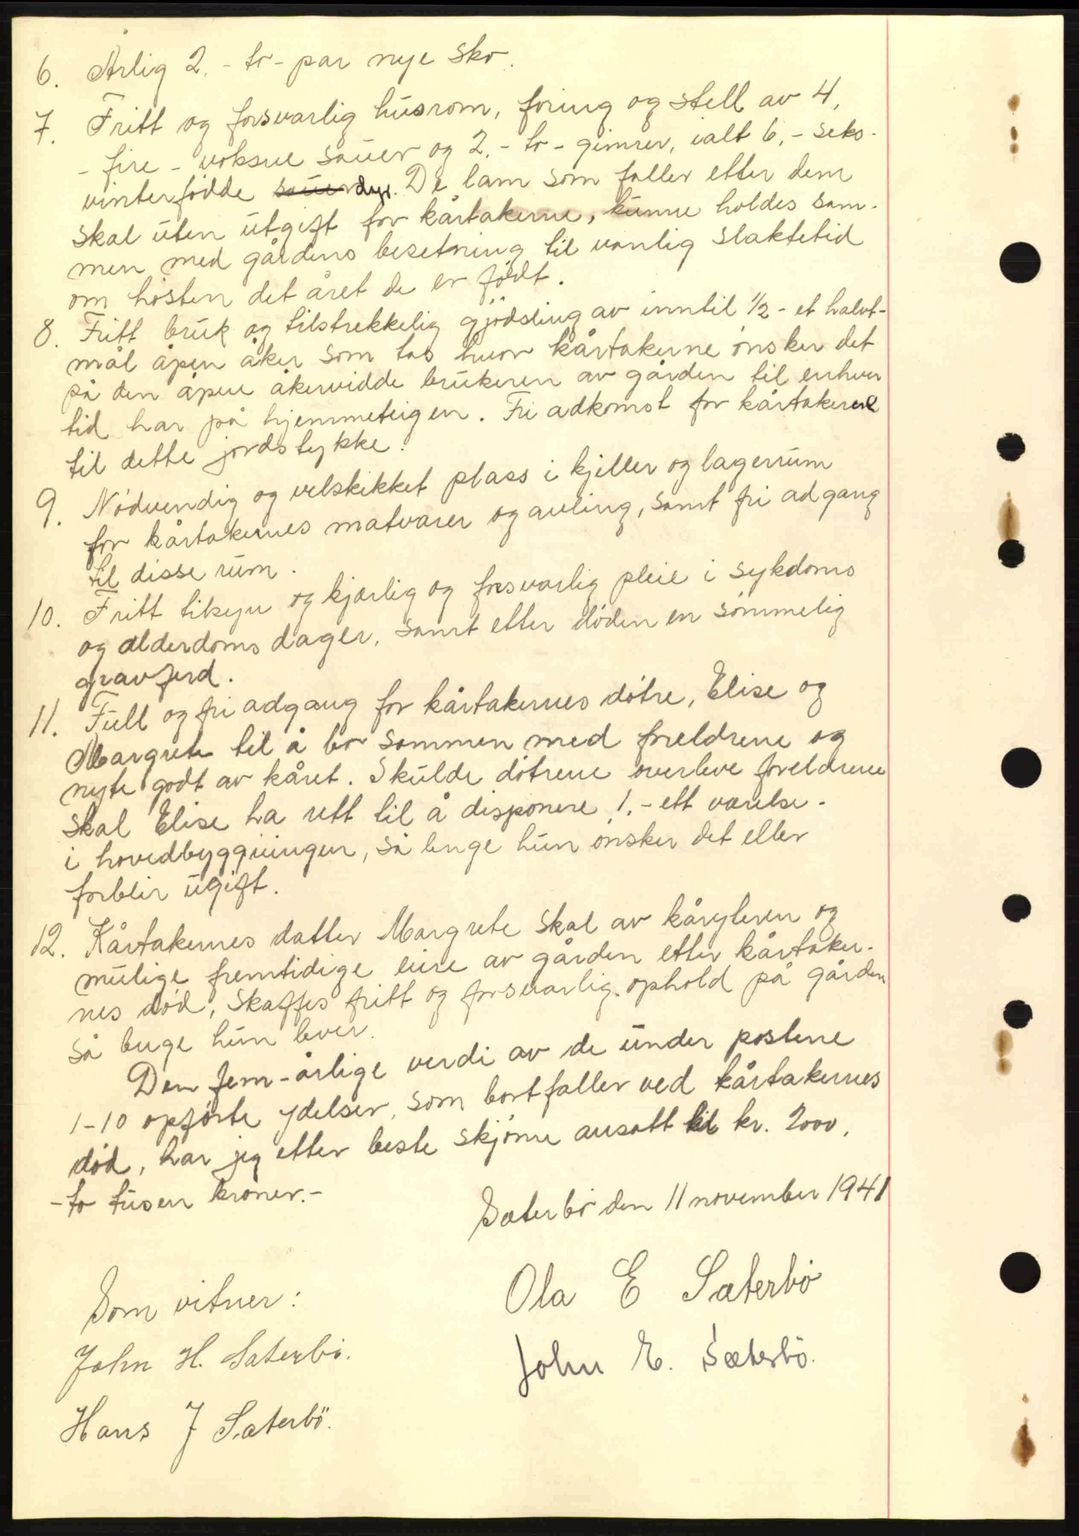 6. Årlig 2. - to - par nye sko.
7. Fritt og forsvarlig husrom, foring og stell av 4,
- fire - voksne sauer og 2. - to - gimrer, ialt 6, - seks -
vinterfödde sauer dyr. De lam som faller etter dem
skal uten utgift for kårtakerne, kunne holdes sam-
men med gårdens besetning til vanlig slaktetid
om hösten det året de er födt.
8. Fritt bruk og tilstrekkelig gjödsling av inntil 1/2 - et halvt -
mål åpen åker som tas hvor kårtakerne önsker det
på den åpne åkervidde brukeren av gården til enhver
tid har på hjemmeteigen. Fri adkomst for kårtakerne
til dette jordstykke.
9. Nödvendig og velskikket plass i kjeller og lagerrum
for kårtakernes matvarer og avling, samt fri adgang
til disse rum.
10. Fritt tilsyn og kjærlig og forsvarlig pleie i sykdoms
og alderdoms dager, samt etter döden en sömmelig
gravferd.
11. Full og fri adgang for kårtakernes dötre, Elise og
Margrete til å bo sammen med foreldrene og
nyte godt av kåret. Skulde dötrene overleve foreldrene
skal Elise ha rett til å disponere 1. - ett værelse -
i hovedbyggningen, så lenge hun önsker det eller
forblir ugift.
12. Kårtakernes datter Margrete skal av kåryteren og
mulige fremtidige eiere av gården etter kårtaker-
nes död, skaffes fritt og forsvarlig ophold på gården
så lenge hun lever.
Den fem-årlige verdi av de under postene
1-10 opförte ydelser, som bortfaller ved kårtakernes
död, har jeg etter beste skjönn ansatt til kr. 2000,
- to tusen kroner. -
Sæterbö den 11 november 1941
Ola E Sæterbö
John E. Sæterbö.
Som vitner:
John H. Sæterbö.
Hans J Sæterbö.